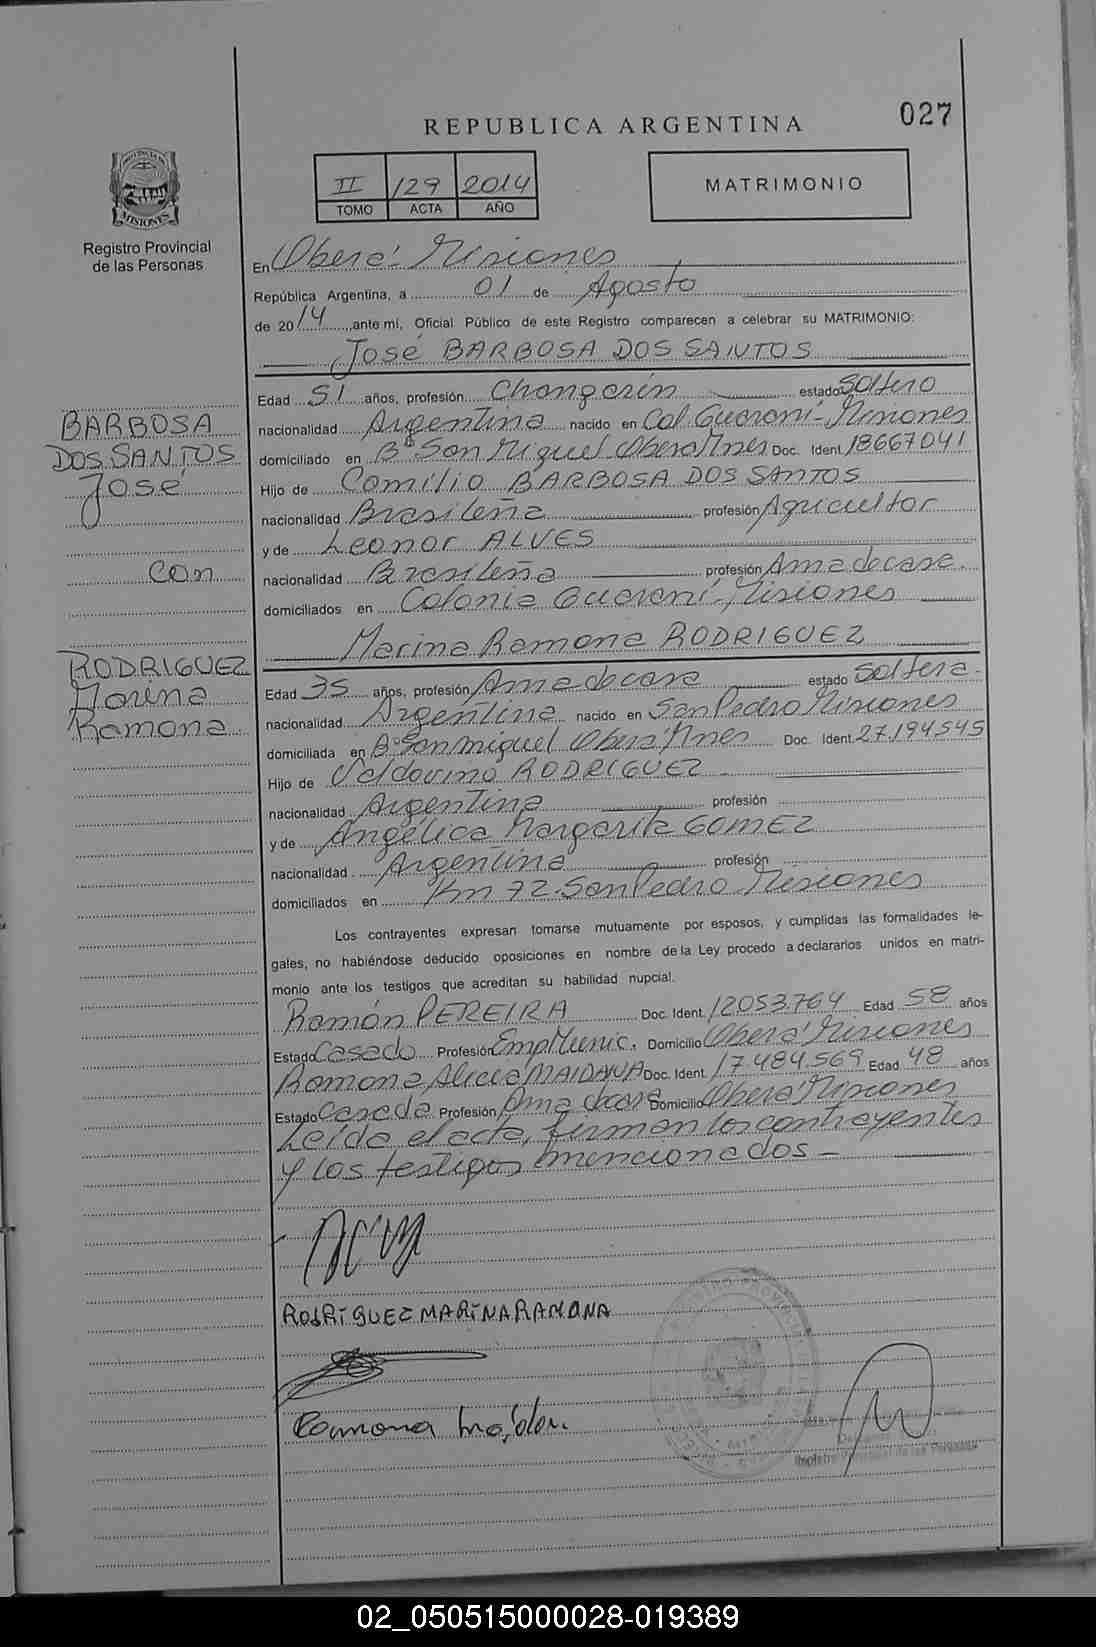 027
REPUBLICA ARGENTINA
II 129 2014
TOMO ACTA AÑO
MATRIMONIO
PROVINCIA DE
MISIONES
Registro Provincial
de las Personas
En Oberá - Misiones
República Argentina, a 01 de Agosto
de 2014, ante mi, Oficial Público de este Registro comparecen a celebrar su MATRIMONIO:
José BARBOSA DOS SANTOS
Edad 51 años, profesión Changarín estado Soltero
nacionalidad Argentina nacido en Col Guaraní - Misiones
domiciliado en Bº San Miguel Oberá Mnes Doc. Ident. 18667041
Hijo de Comilio BARBOSA DOS SANTOS
nacionalidad Brasileña profesión Agricultor
y de Leonor ALVES
nacionalidad Brasileña profesión Ama de casa.
domiciliados en Colonia Guaraní - Misiones
BARBOSA
DOS SANTOS
José
con
RODRIGUEZ
Marina
Ramona.
Marina Ramona RODRIGUEZ
Edad 35 años, profesión Ama de casa estado Soltera-
nacionalidad Argentina nacido en San Pedro Misiones
domiciliada en Bº San Miguel Oberá Mnes Doc. Ident. 27.194.545
Hijo de Valdovino RODRIGUEZ
nacionalidad Argentina profesión
y de Angélica Margarita GOMEZ
nacionalidad Argentina profesión
domiciliados en Km 72 - San Pedro Misiones
Los contrayentes expresan tomarse mutuamente por esposos, y cumplidas las formalidades le-
gales, no habiéndose deducido oposiciones en nombre de la Ley procedo a declararlos unidos en matri-
monio ante los testigos que acreditan su habilidad nupcial.
Ramón PEREIRA Doc. Ident. 12053.764 Edad 58 años
Estado Casado Profesión Emp Munic. Domicilio Oberá Misiones
Ramona Alicia MAIDANA Doc. Ident. 17.484.569 Edad 48 años
Estado Casada Profesión Ama de casa Domicilio Oberá Misiones
Leída el acta, firman los contrayentes
y los testigos mencionados -
RODRIGUEZ MARINA RAMONA
Ramona
Registro Provincial de las Personas
02_050515000028-019389